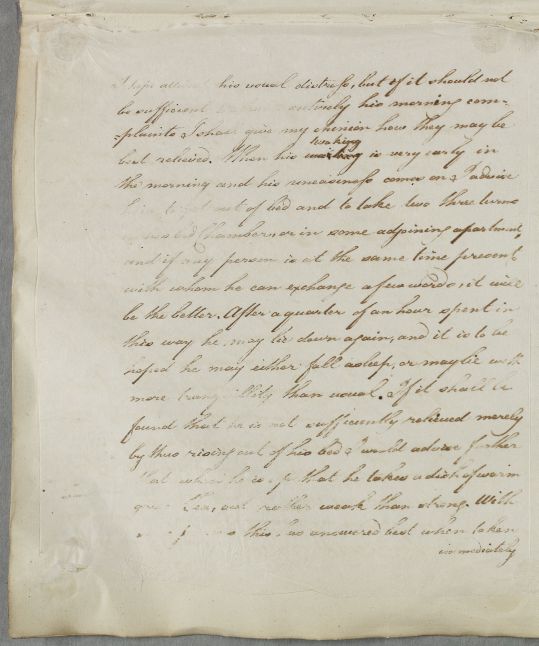 his usual distress, but if it should not
be sufficient entirely his morning com-
-plaints I shall give my opinion how they may be
best relieved. When his waking is very early in
the morning and his uneasiness comes on I advise
him to get out of bed and to take two three turns
in his bed Chamber or in some adjoining apartment,
and if any person is at the same time present
with whom he can exchange a few words it will
be the better. After a quarter of an hour spent in
this way he may lie down again, and it is to be
hoped he may either fall asleep, or may lie with
more tranquillity than usual. If it shall be
found that he is not sufficiently relieved merely
by thus rising out of his bed I would advise further
that when he is up that he takes a dish of warm
green Tea, and rather weak than strong. With
this has answered best when taken
immediately